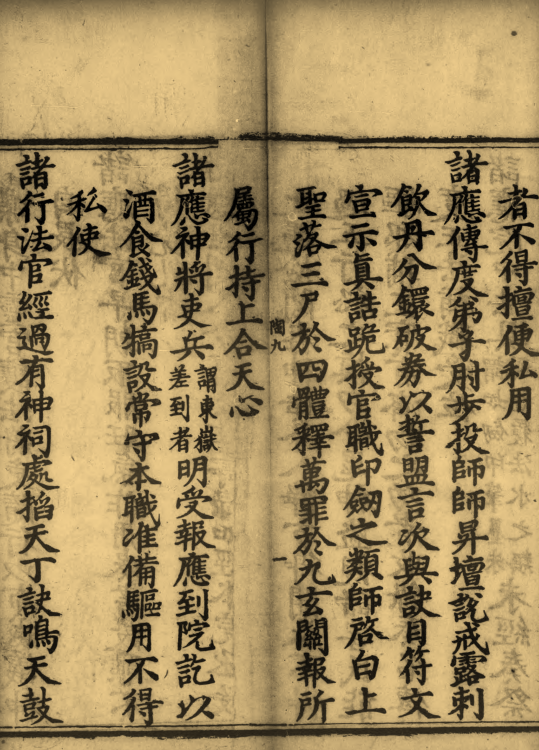 者不得擅便私用
諸應傳度弟子肘步投師師昇壇說戒露刺
飲丹分鐶破券以誓盟言次與訣目符文
宣示真誥跪授官職印劒之類師啓白上
聖落三尸於四體釋萬罪於九玄關報所
闡九 一
屬行持上合天心
諸應神將吏兵謂東嶽差到者明受報應到院訖以
酒食錢馬犒設常守本職准備驅用不得
私使
諸行法官經過有神祠處掐天丁訣鳴天鼓